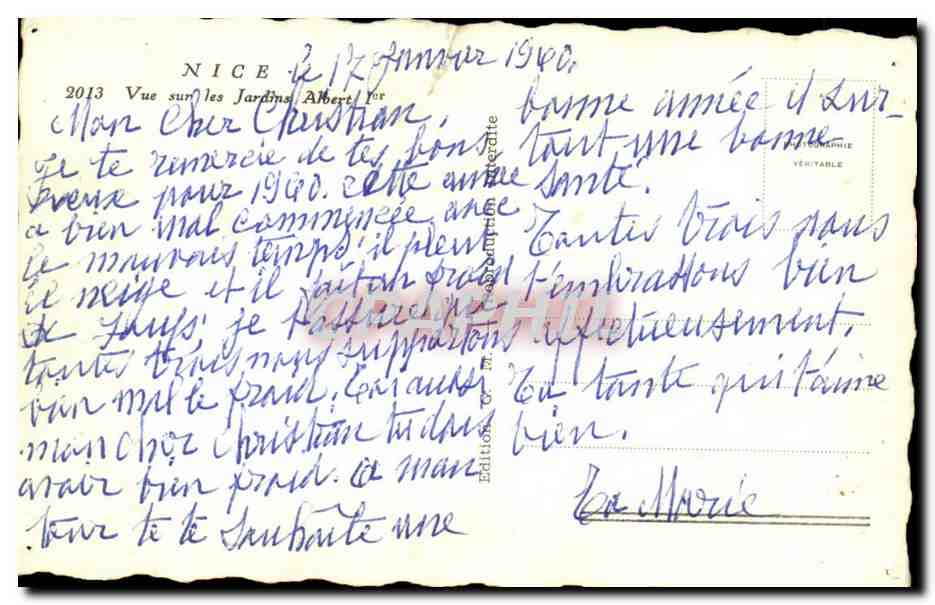 NICE
le 17 Janvier 1960.
2013 Vue sur les Jardins Albert Ier
Mon Cher Christian,
Je te remercie de tes bons
veux pour 1960. cette année
a bien mal commencée avec
le mauvais temps, il pleut
il neige et il fait un froid
de loups, je t'assure que
toutes trois nous supportons
bien mal le froid. Toi aussi
mon cher Christian tu dois
avoir bien froid. A mon
tour je te souhaite une
bonne année et sur-
tout une bonne
santé.
Toutes trois nous
t'embrassons bien
affectueusement.
Ta tante qui t'aime
bien.
Ta Marie
Edition G. M. Reproduction interdite
PHOTOGRAPHIE
VÉRITABLE